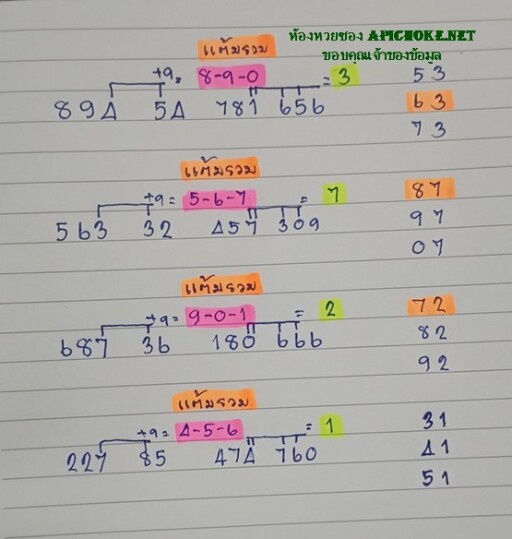 ห้องหวยซอง APICHOKE.NET
ขอบคุณเจ้าของข้อมูล
แต้มรวม
+9= 8-9-0 = 3 53
894 54 781 656 63
73
แต้มรวม
+9= 5-6-7 = 7 87
563 32 457 309 97
07
แต้มรวม
+9= 9-0-1 = 2 72
687 36 180 666 82
92
แต้มรวม
+9= 4-5-6 = 1 31
227 85 474 760 41
51